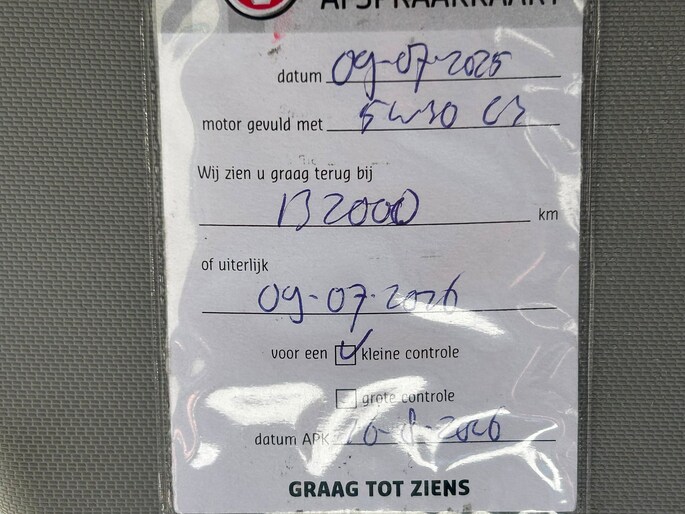 AFSPRAAKKAART
datum 09-07-2025
motor gevuld met 5W30 C3
Wij zien u graag terug bij
132000 km
of uiterlijk
09-07-2026
voor een kleine controle
grote controle
datum APK 26-8-2026
GRAAG TOT ZIENS